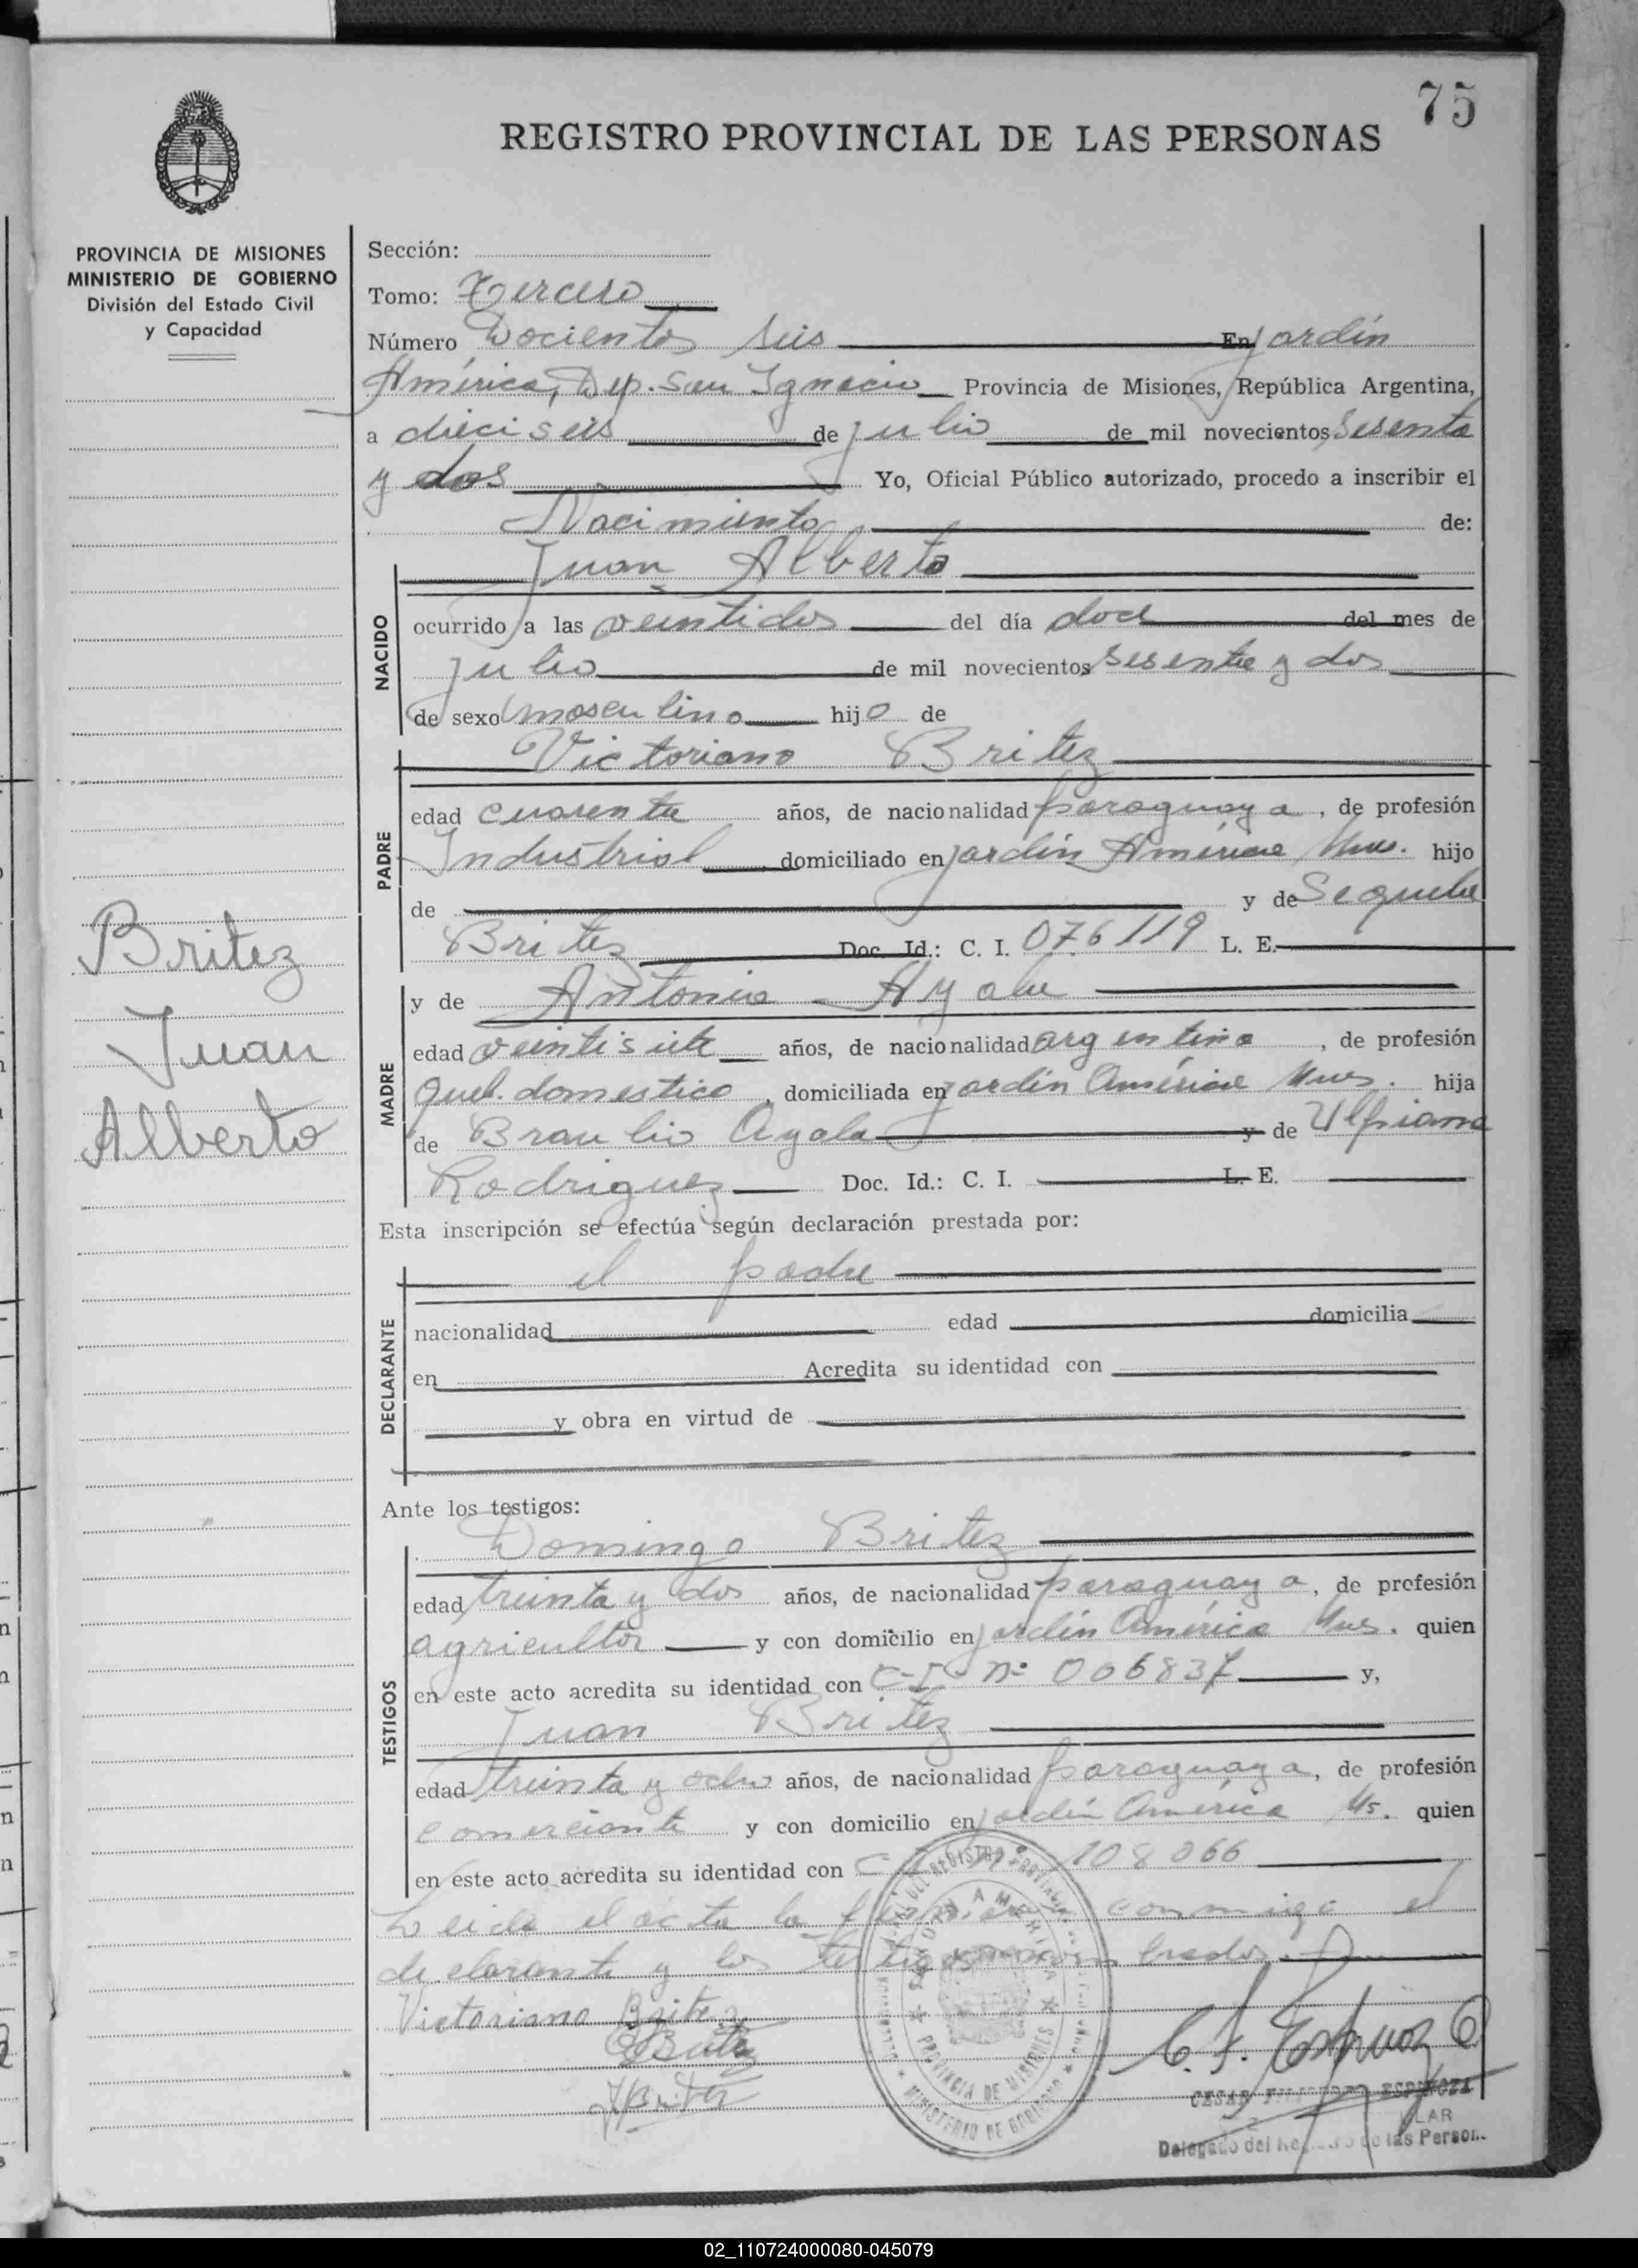 75
REGISTRO PROVINCIAL DE LAS PERSONAS
PROVINCIA DE MISIONES
MINISTERIO DE GOBIERNO
División del Estado Civil
y Capacidad
Sección:
Tomo: Tercero
Número Docientos seis En Jardín
América, Dep. San Ignacio Provincia de Misiones, República Argentina,
a dieciseis de julio de mil novecientos sesenta
y dos Yo, Oficial Público autorizado, procedo a inscribir el
Nacimiento de:
Juan Alberto
NACIDO
ocurrido a las veintidos del día doce del mes de
julio de mil novecientos sesenta y dos
de sexo masculino hijo de
Victoriano Britez
PADRE
edad cuarenta años, de nacionalidad paraguaya, de profesión
Industrial domiciliado en Jardín América Mnes. hijo
de y de
Britez Doc. Id.: C. I. 076119 L. E.
Britez
Juan
Alberto
MADRE
y de Antonia Ayala
edad veintisiete años, de nacionalidad argentina, de profesión
Queh. domestico, domiciliada en Jardín América Mnes. hija
de Braulio Ayala y de Ulpiana
Rodriguez Doc. Id.: C. I. L. E.
Esta inscripción se efectúa según declaración prestada por:
el padre
DECLARANTE
nacionalidad edad domicilia
en Acredita su identidad con
y obra en virtud de
Ante los testigos:
Domingo Britez
TESTIGOS
edad treinta y dos años, de nacionalidad paraguaya, de profesión
agricultor y con domicilio en Jardín América Mnes. quien
en este acto acredita su identidad con C.I. nº 006837 y,
Juan Britez
edad treinta y ocho años, de nacionalidad paraguaya, de profesión
comerciante y con domicilio en Jardín América Ms. quien
en este acto acredita su identidad con C.I. nº 108066
Leida el acta la firman conmigo el
declarante y los testigos nombrados.
Victoriano Britez
DBritez
JBritez
JARDIN AMERICA
PROVINCIA DE MISIONES
MINISTERIO DE GOBIERNO
C. F. Espinoza
CESAR ESPINOZA
Delegado del Registro de las Person.
02_110724000080-045079